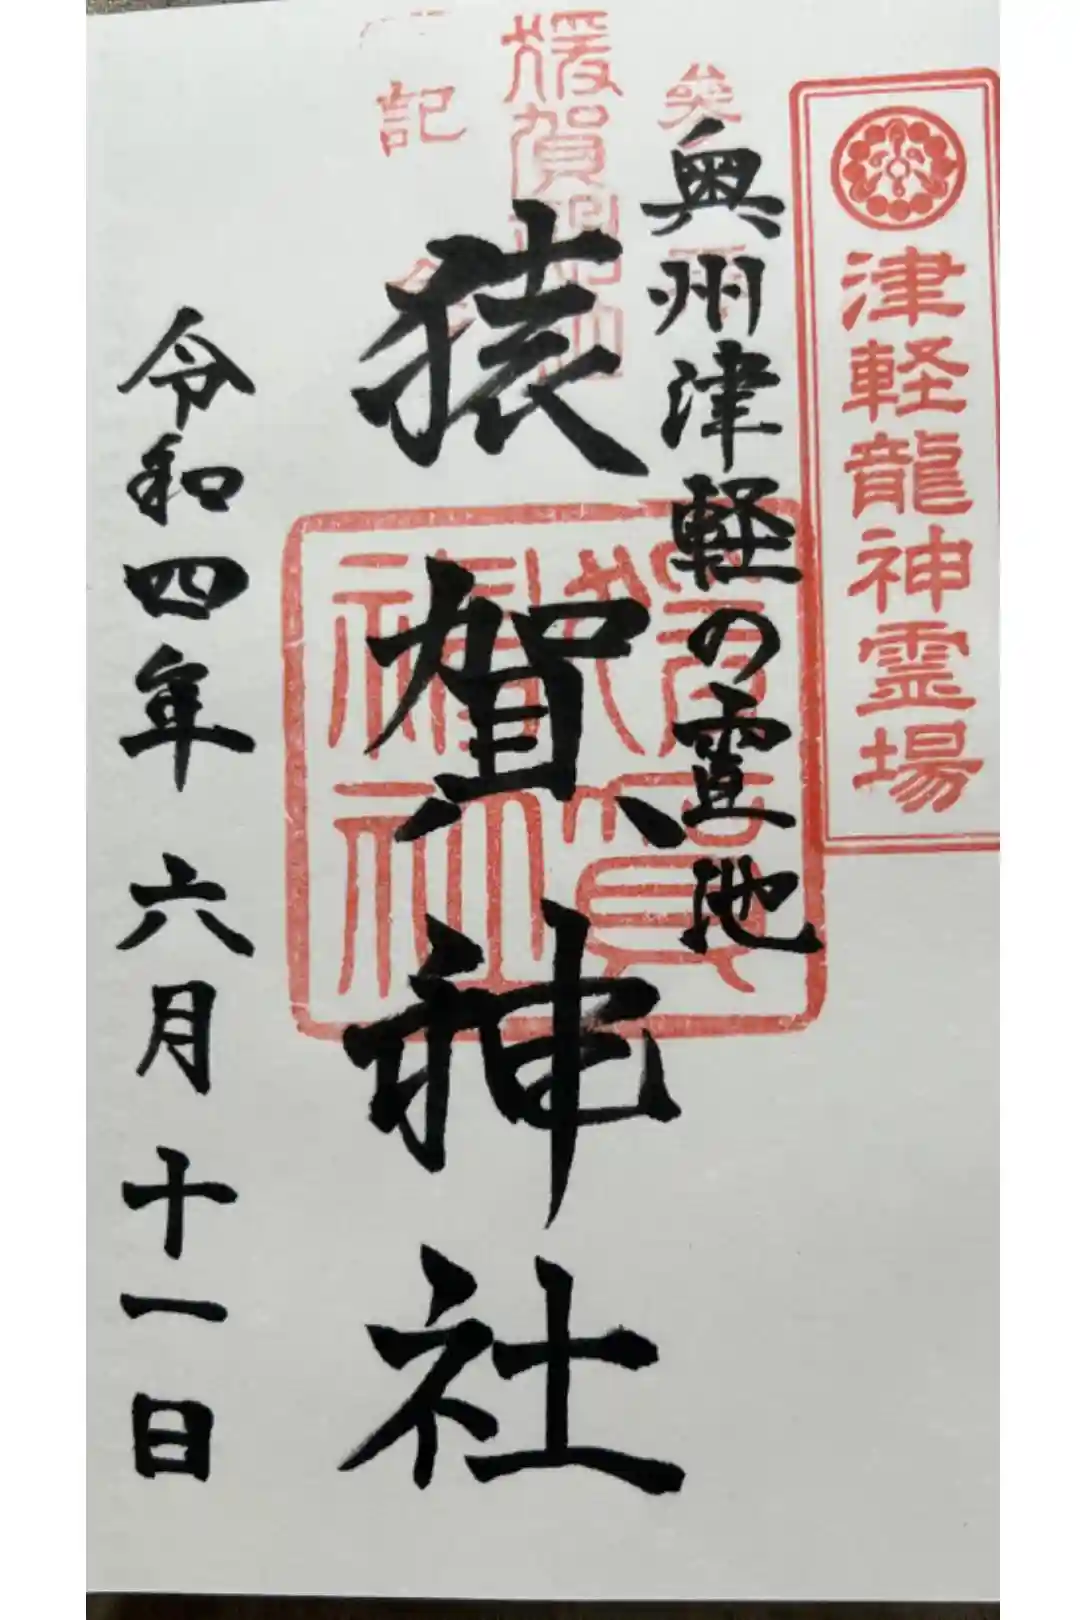 津軽龍神霊場
奥州津軽の霊池
猿賀神社
令和四年六月十一日